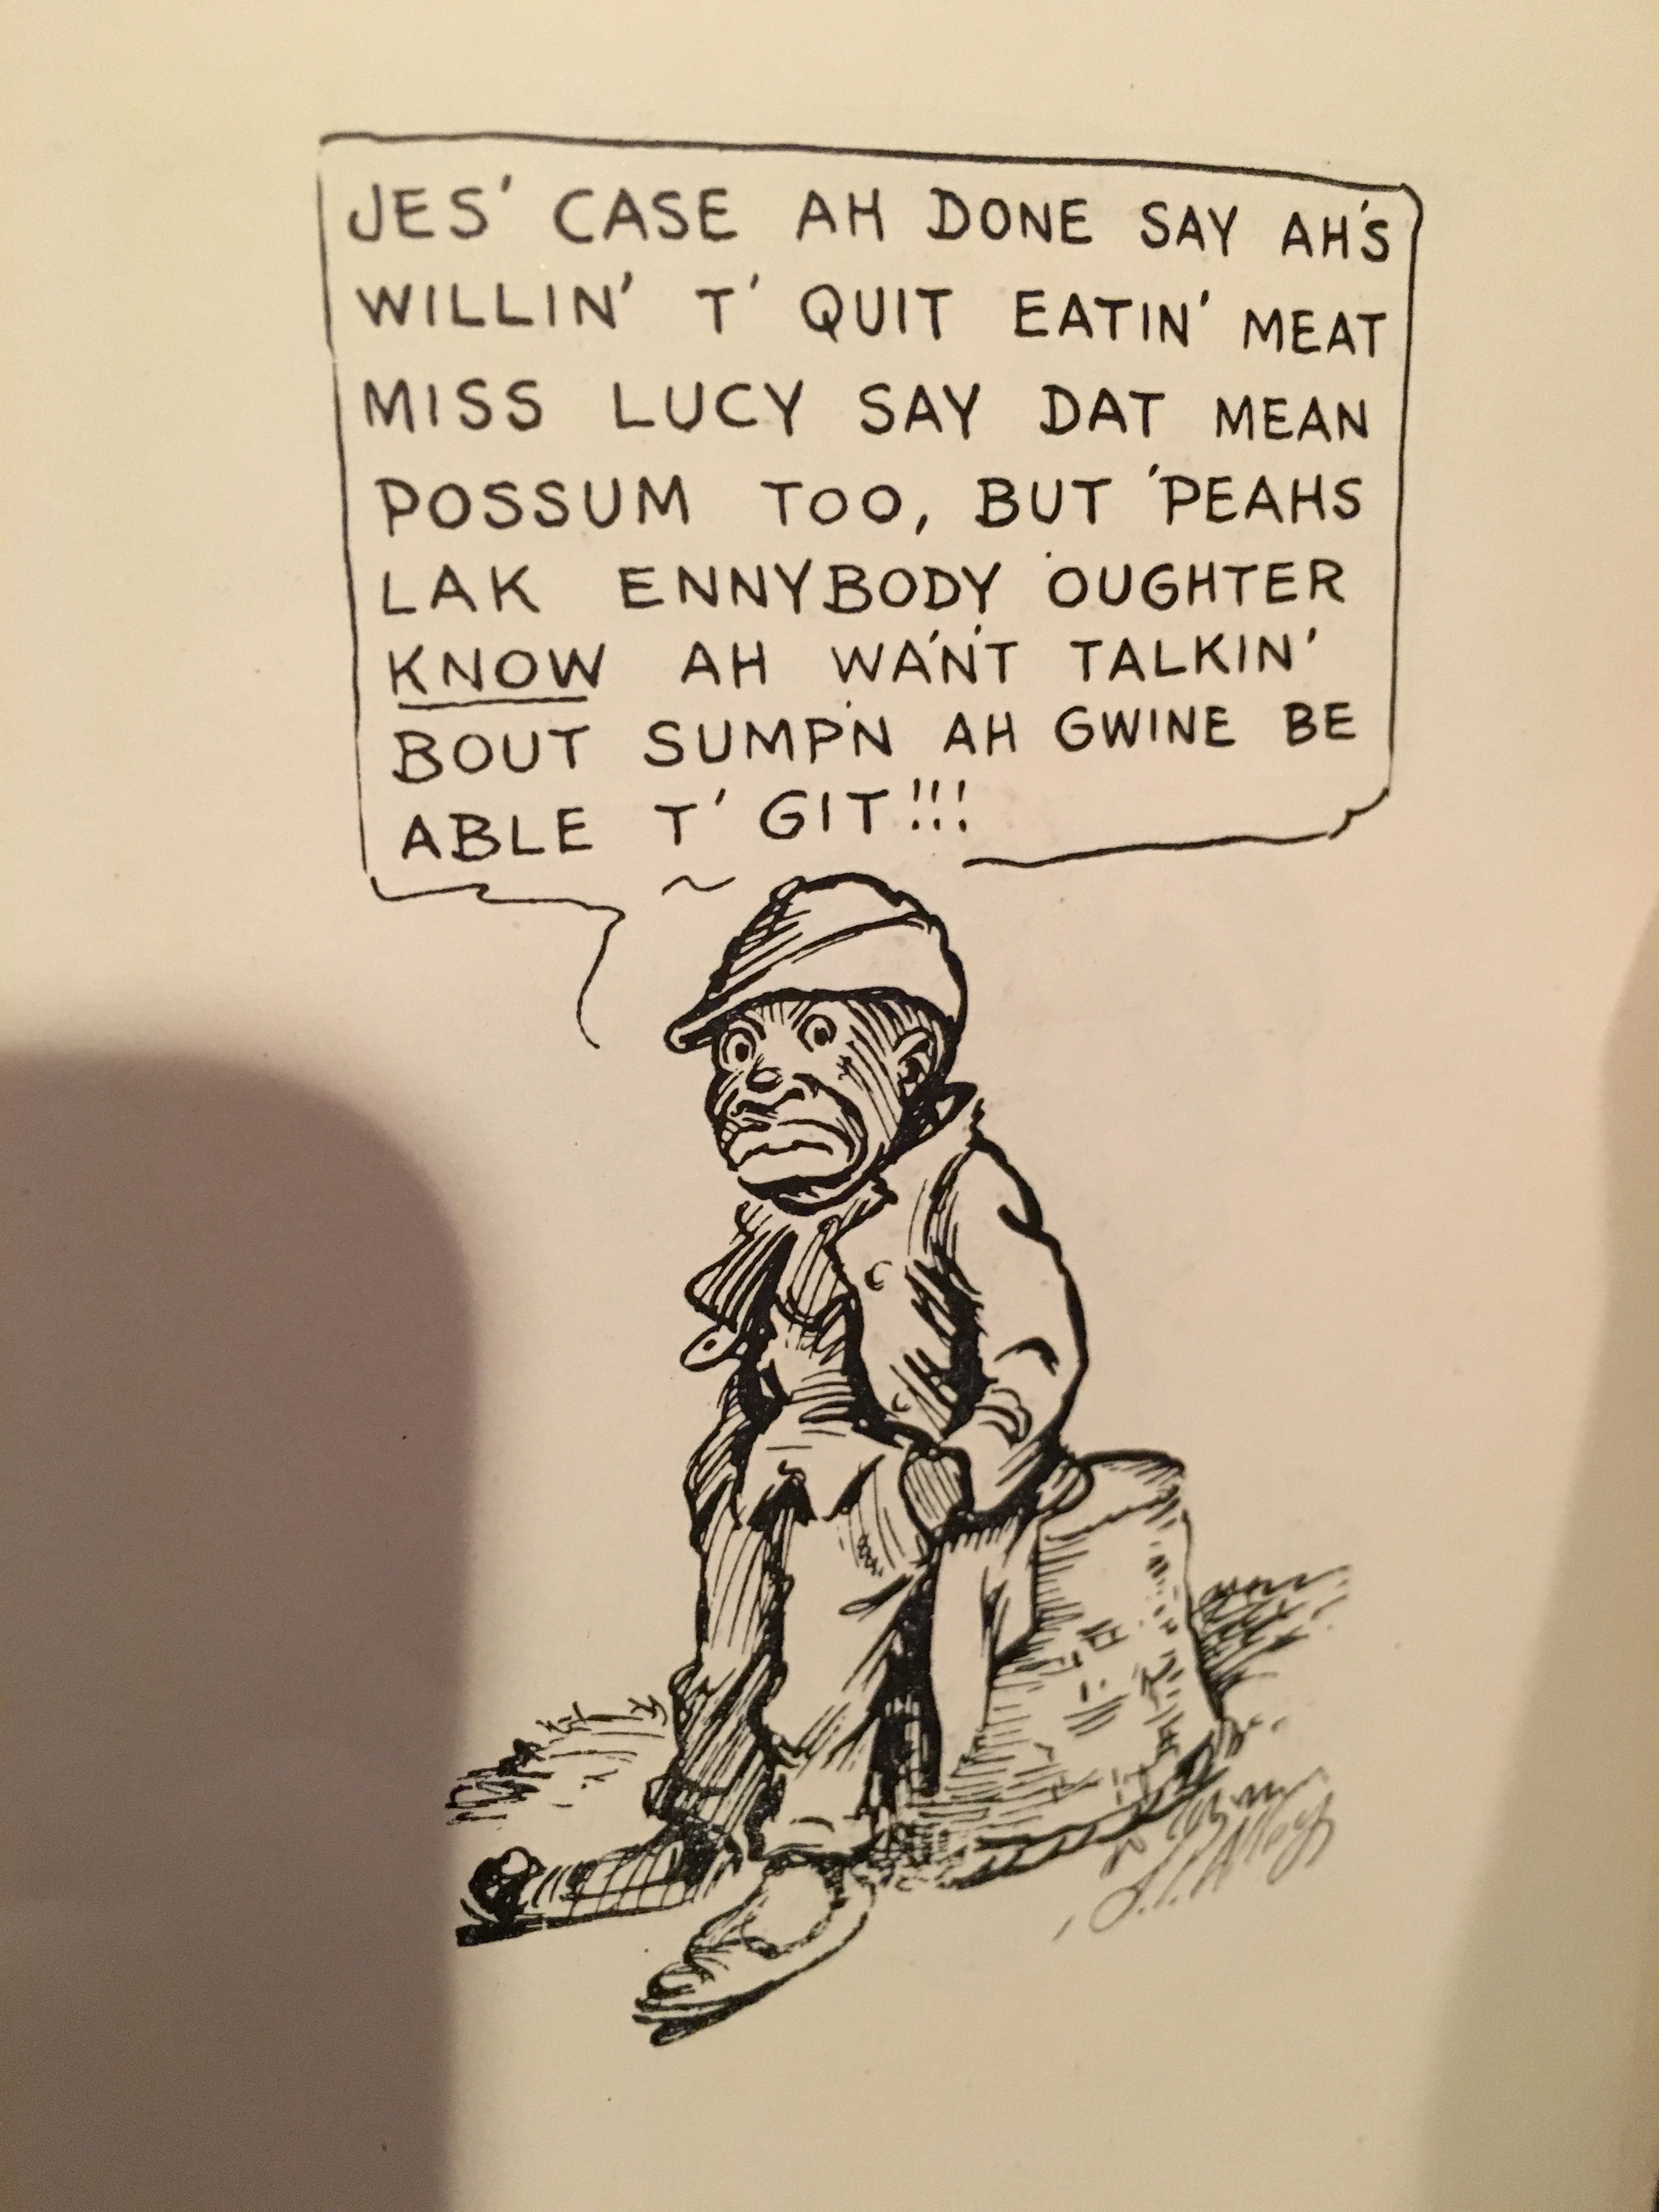 JES' CASE AH DONE SAY AH'S
WILLIN' T' QUIT EATIN' MEAT
MISS LUCY SAY DAT MEAN
POSSUM TOO, BUT 'PEAHS
LAK ENNYBODY OUGHTER
KNOW AH WA'N'T TALKIN'
BOUT SUMP'N AH GWINE BE
ABLE T' GIT!!!
J.P. Alley